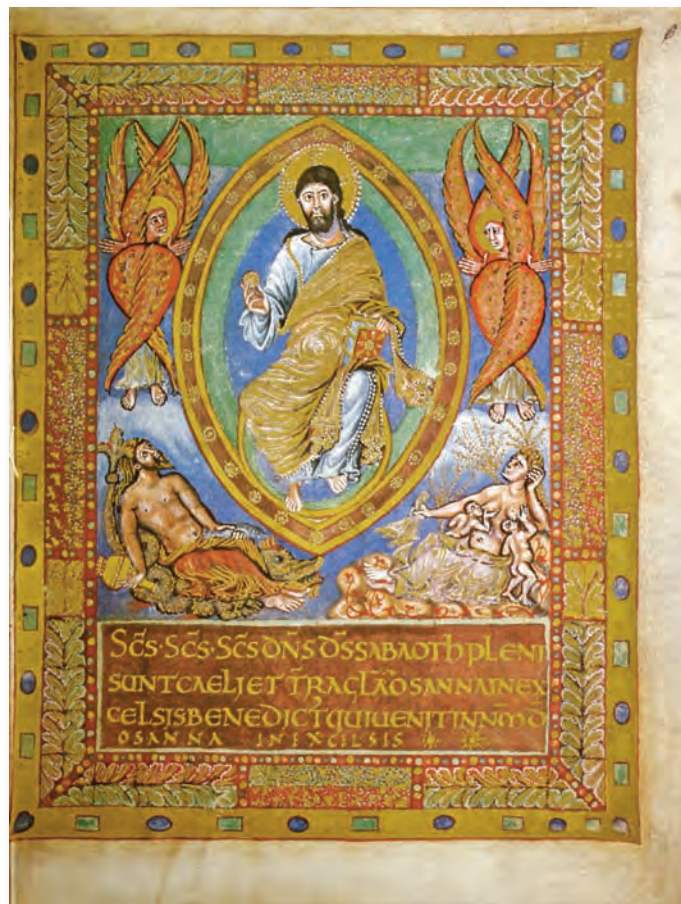 Sc̄s·Sc̄s·Sc̄s dn̄s ds̄ sabaoth pleni
sunt caeli et t̄ra gl̄a osanna in ex
celsis benedict̄ qui uenit in nn̄m d̄
OSANNA IN EXCELSIS